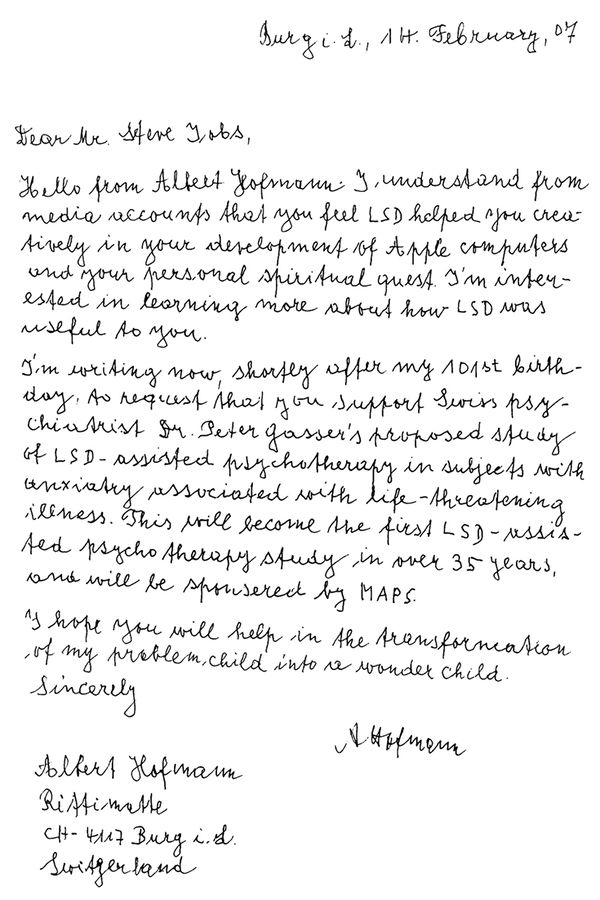 Burg i. L., 14. February, 07
Dear Mr. Steve Jobs,
Hello from Albert Hofmann. I understand from
media accounts that you feel LSD helped you crea-
tively in your development of Apple computers
and your personal spiritual quest. I'm inter-
ested in learning more about how LSD was
useful to you.
I'm writing now, shortly after my 101st birth-
day, to request that you support Swiss psy-
chiatrist Dr. Peter Gasser's proposed study
of LSD-assisted psychotherapy in subjects with
anxiatry associated with life-threatening
illness. This will become the first LSD-assis-
ted psychotherapy study in over 35 years,
and will be sponsered by MAPS.
I hope you will help in the transformation
of my problem child into a wonder child.
Sincerely
A Hofmann
Albert Hofmann
Rittimatte
CH-4117 Burg i. L.
Switzerland